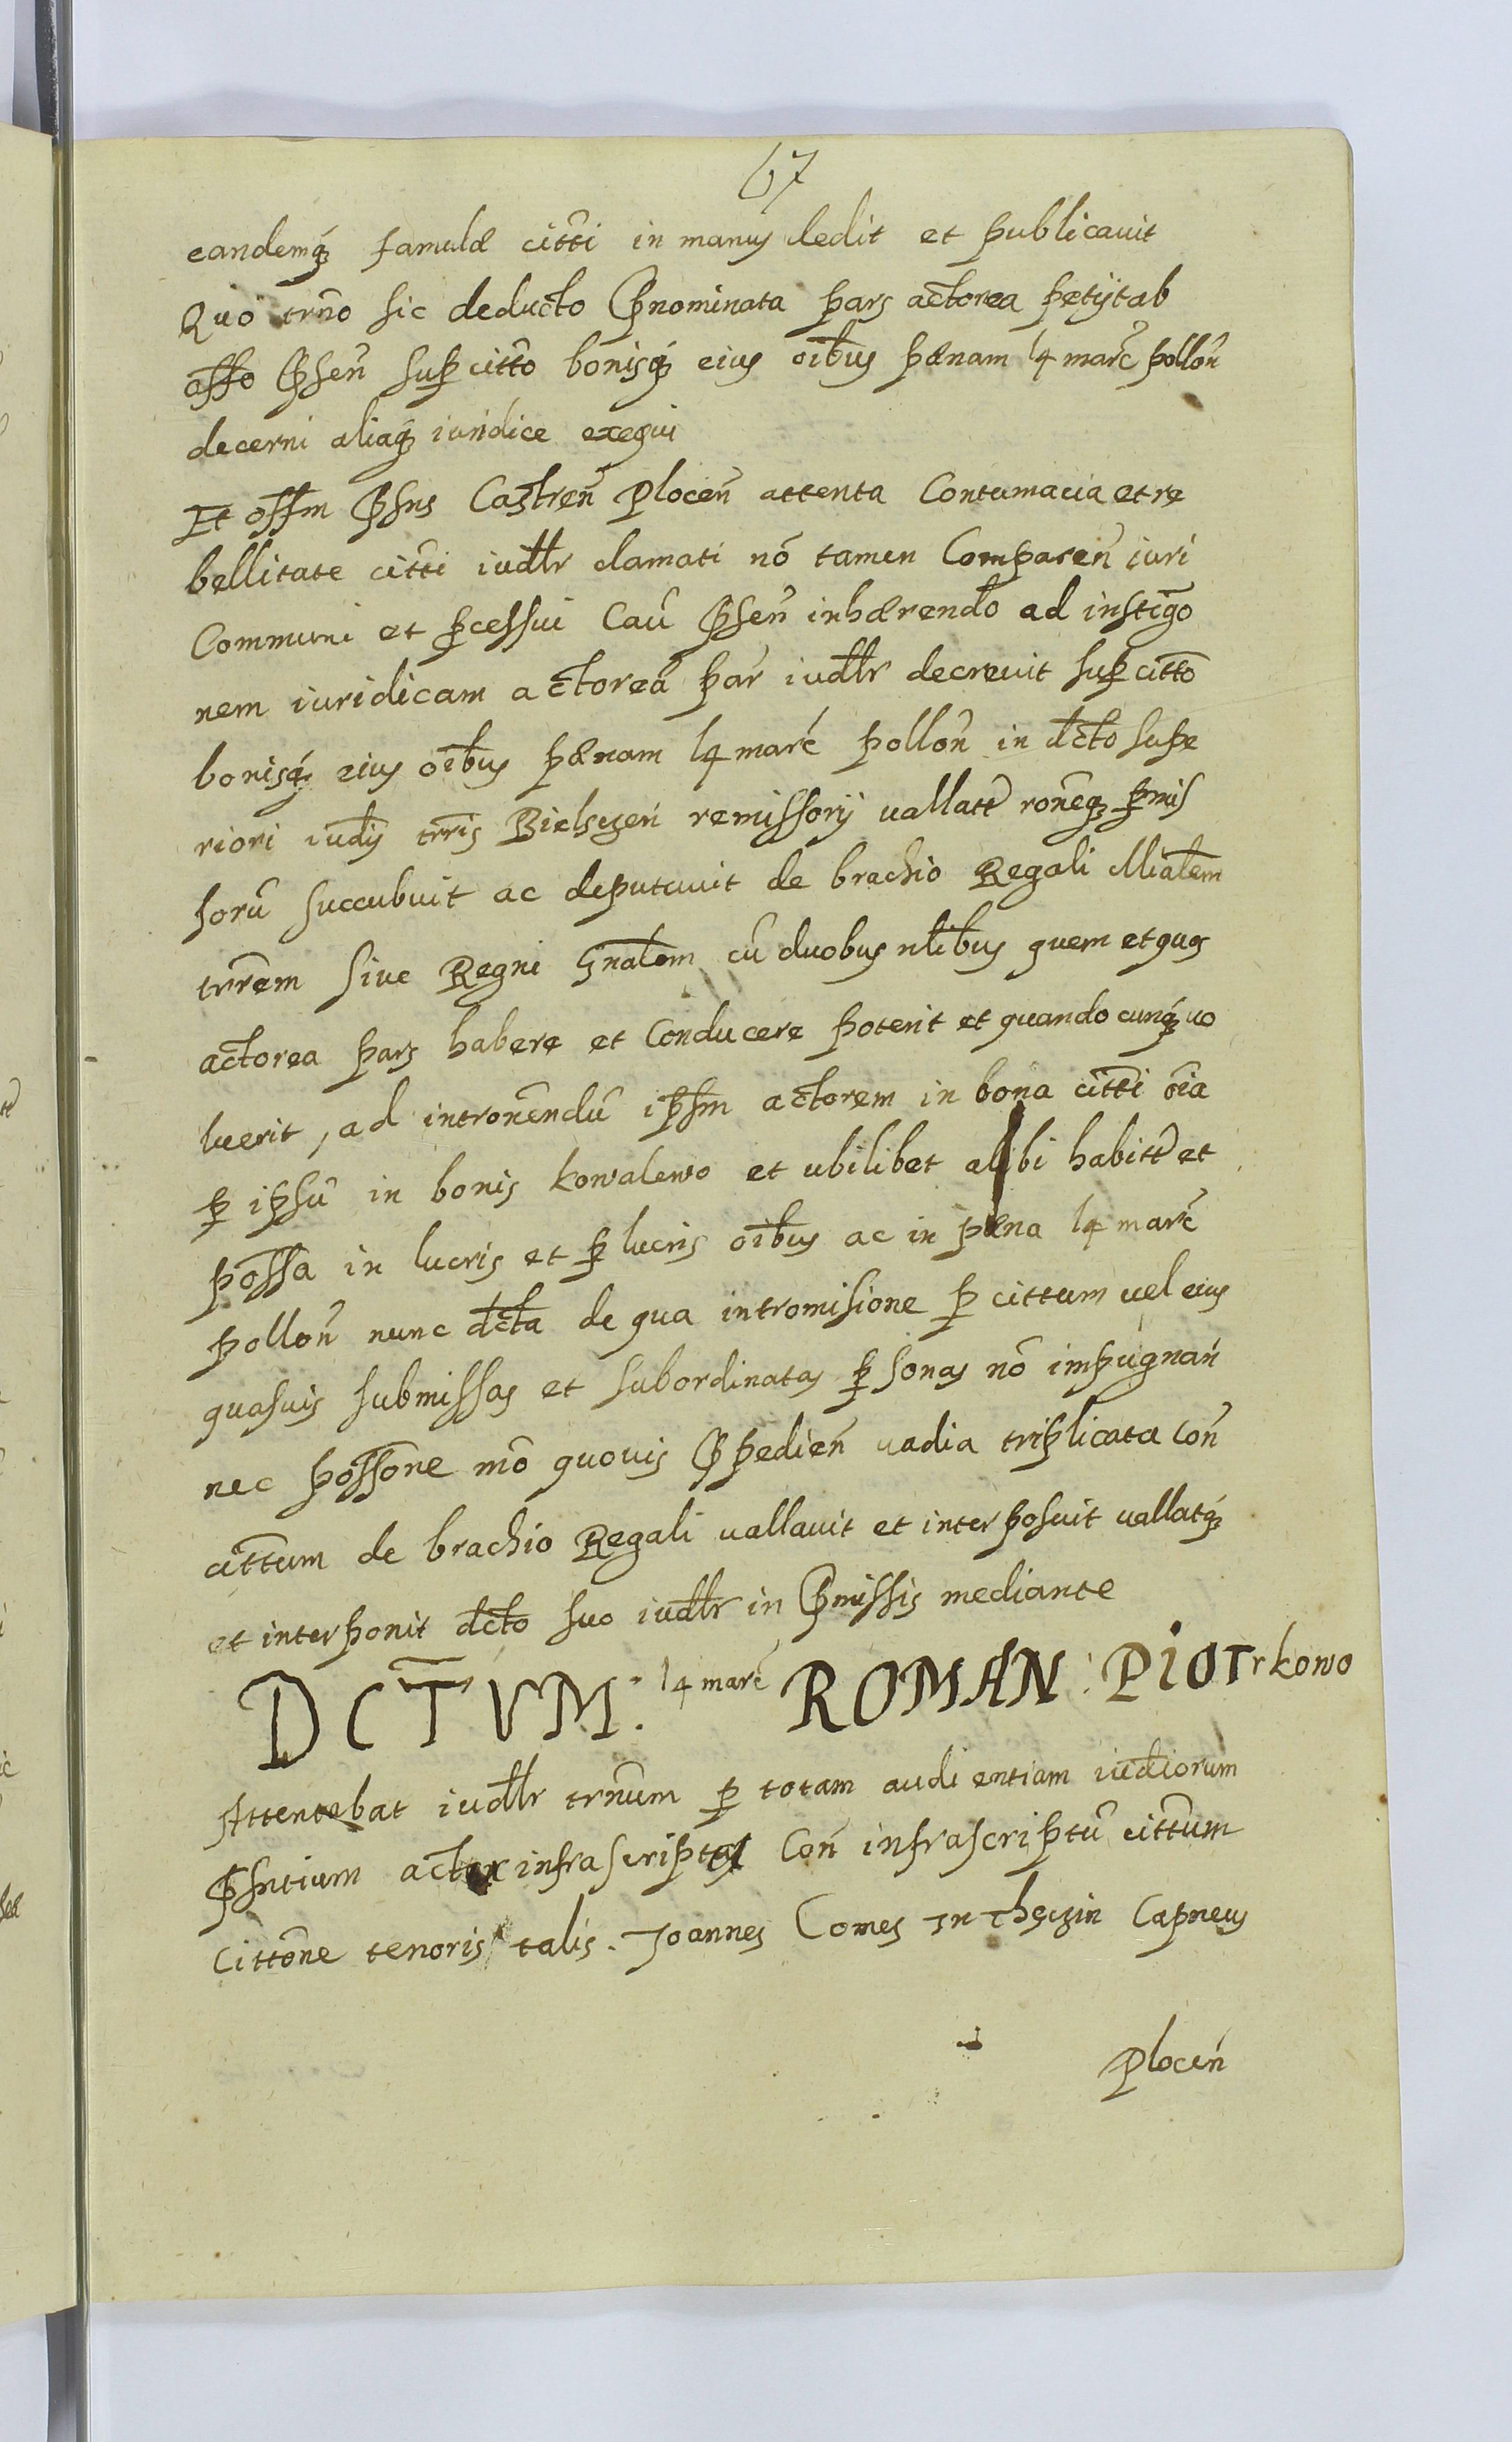 67
eandemq́ famulæ citti in manus dedit et publicavit
Quo trno sic deducto Pnominata pars actorea petijt ab
offo Psen̄ sup citto bonisq́ eius oibus pænam 14 marc̄ pollon̄
decerni aliaq́ iuridice exequi
Et offm Psns Castren̄ Plocen̄ attenta Contumacia et re
bellitate citti iudlr clamati nō tamen Comparen̄ iuri
Communi et pcessui Cau̅ Psen̄ inhærendo ad instigo
nem iuridicam actorea par̄ iudlr decrevit sup citto
bonisq́ eius oibus pænam 14 marc̄ pollon̄ in dcto supe
riori iudij trris Bielscen̄ remissorij vallatt roneq́ pmis
soru̅ succubuit ac deputavit de brachio Regali Mialem
trrem sive Regni Gnalem cu̅ duobus nlibus quem et quos
actorea pars habere et Conducere poterit et quandocunq́ vo
luerit, ad intronendu̅ ipsm actorem in bona citti oia
p ipsu̅ in bonis Kowalewo et ubilibet alibi habitt et
possa in lucris et p lucris oibus ac in pæna 14 marc̄
pollon̄ nunc dcta de qua intromisione p cittum vel eius
quasvis submissas et subordinatas psonas nō impugnan̄
nec possone mō quovis Ppedien̄ vadia triplicata Con̄
cittum de brachio Regali vallavit et interposuit vallatq́
et interponit dcto suo iudlr in Pmissis mediante
DCTUM. 14 marc̄ ROMAN: PIOTrkowo
Attentebat iudlr trnum p totam audientiam iudiorum
Psntium actor infrascriptus Con̄ infrascriptu̅ cittum
Cittone tenoris talis. Joannes Comes In Thęczin Capneus
Plocen̄